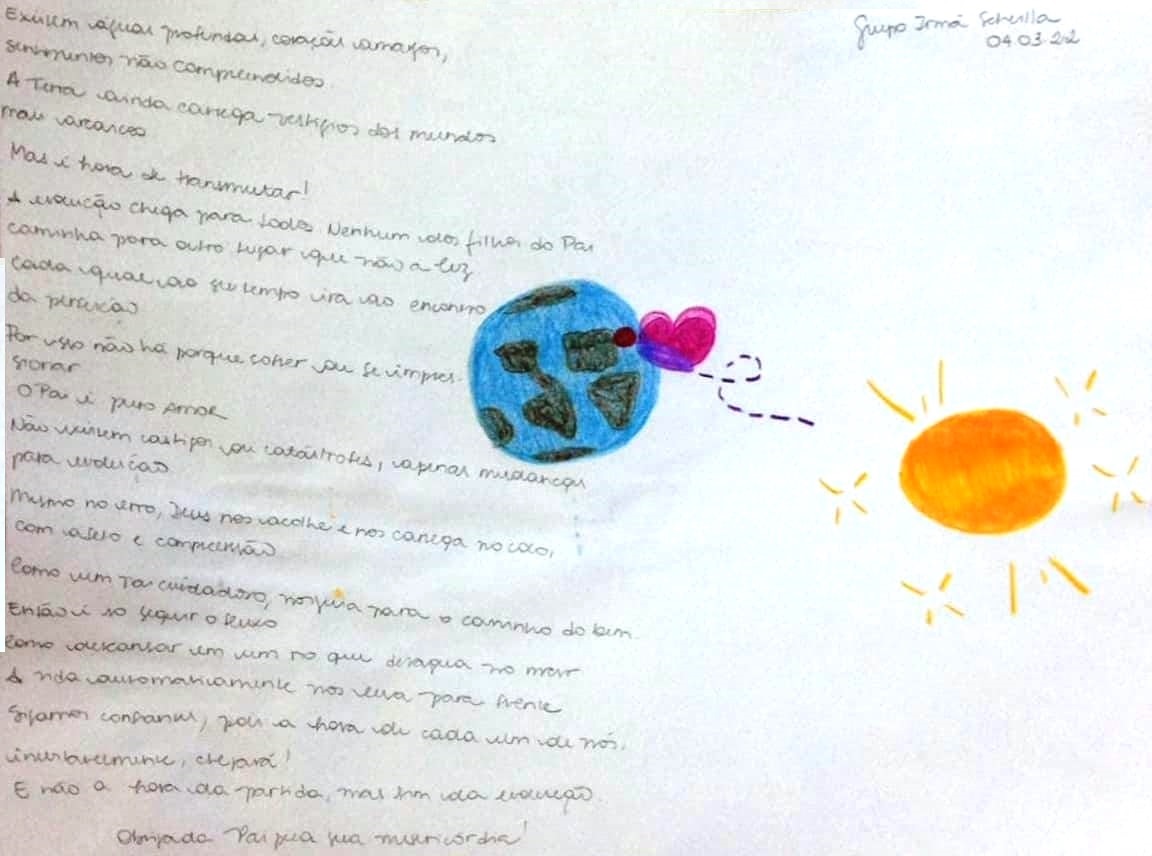 Grupo Irmã Scheilla
04.03.22
Existem águas profundas, corações amargos,
sentimentos não compreendidos.
A Terra ainda carrega vestígios dos mundos
mais arcaicos
Mas é hora de transmutar!
A evolução chega para todos Nenhum dos filhos do Pai
caminha para outro lugar que não a luz
Cada qual ao seu tempo irá ao encontro
da perfeição
Por isso não há porque sofrer ou se impres-
sionar
O Pai é puro Amor
Não existem castigos ou catástrofes, apenas mudanças
para evolução
Mesmo no erro, Deus nos acolhe e nos carrega no colo,
com afeto e compreensão
Como um Pai cuidadoso, nos guia para o caminho do bem
Então é só seguir o fluxo
Como descansar em um rio que deságua no mar
A vida automaticamente nos leva para frente
Sigamos confiantes, pois a hora de cada um de nós,
inevitavelmente, chegará!
E não a hora da partida, mas sim da evolução.
Obrigada Pai pela sua misericórdia!